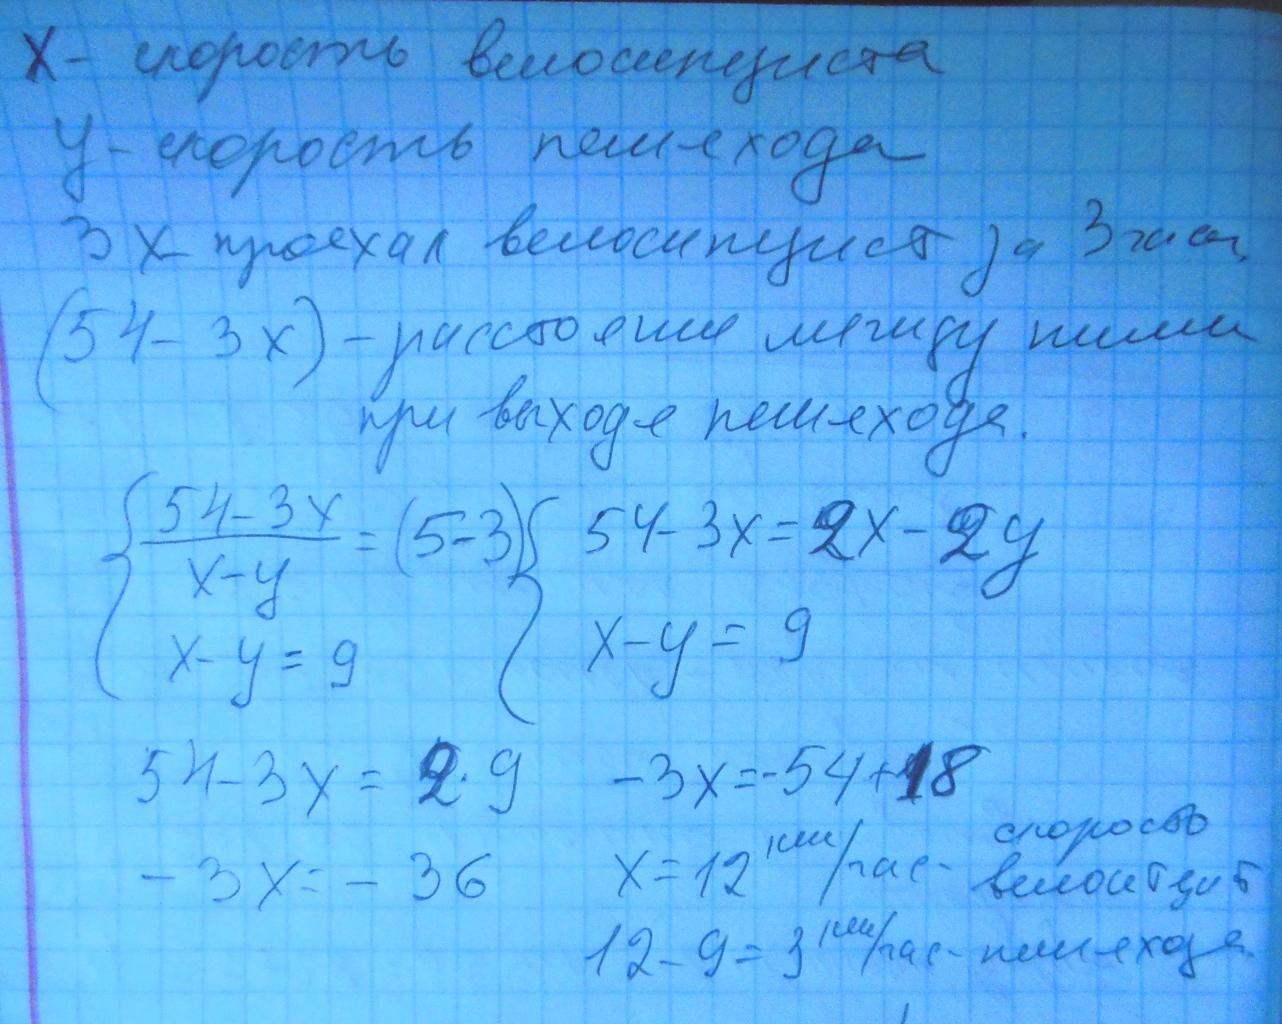 x - скорость велосипедиста
y - скорость пешехода
3x проехал велосипедист за 3 часа,
(54 - 3x) - расстояние между ними
при выходе пешехода.
{ (54-3x)/(x-y) = (5-3) { 54-3x = 2x - 2y
x - y = 9 x - y = 9
54 - 3x = 2·9 -3x = -54+18
-3x = -36 x = 12 км/час - скорость
12 - 9 = 3 км/час - пешехода